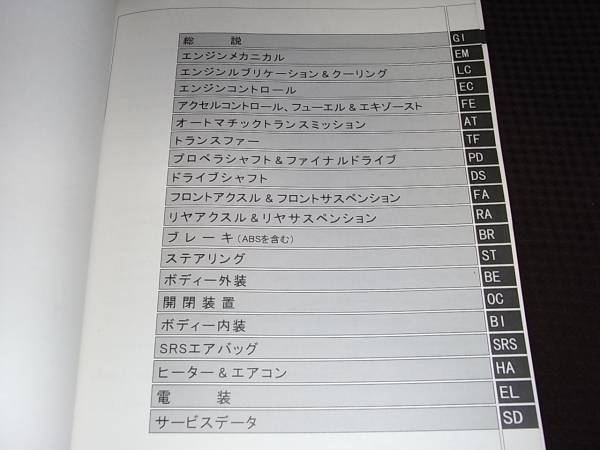 総　　説 GI
エンジンメカニカル EM
エンジンルブリケーション＆クーリング LC
エンジンコントロール EC
アクセルコントロール、フューエル＆エキゾースト FE
オートマチックトランスミッション AT
トランスファー TF
プロペラシャフト＆ファイナルドライブ PD
ドライブシャフト DS
フロントアクスル＆フロントサスペンション FA
リヤアクスル＆リヤサスペンション RA
ブレーキ（ABSを含む） BR
ステアリング ST
ボディー外装 BE
開閉装置 OC
ボディー内装 BI
SRSエアバッグ SRS
ヒーター＆エアコン HA
電　　装 EL
サービスデータ SD